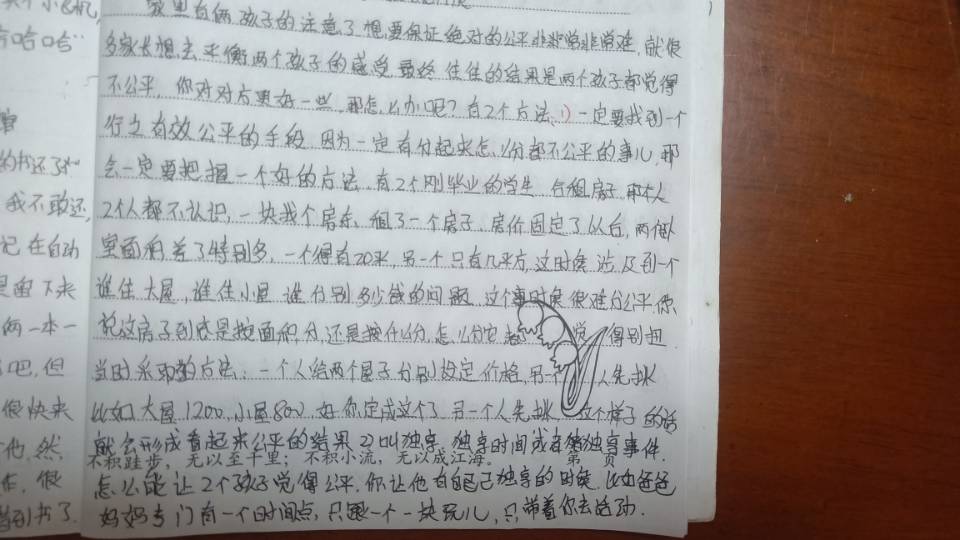 家里有俩孩子的注意了想要保证绝对的公平非非常非常难,就很
多家长想去平衡两个孩子的感受最终往往的结果是两个孩子都觉得
不公平,你对对方更好一些,那怎么办呢?有2个方法,1)一定要找到一个
行之有效公平的手段因为一定有分起来怎么分都不公平的事儿,那
会一定要把握一个好的方法有2个刚毕业的学生合租房子
2个人都不认识,一块找个房东,租了一个房子,房价固定了以后,两个卧
室面积差了特别多,一个得有20米,另一个只有几平方,这时候涉及到一个
谁住大屋,谁住小屋谁分别多少钱的问题这个事时候很难分公平,你
说这房子到底是按面积分,还是按什么分,怎么分它 觉得别扭
当时采取的方法:一个人给两个屋子分别设定价格,另一个人先挑
比如大屋1200,小屋800,好你定成这个了另一个人先挑 这个样子的话
就会形成看起来公平的结果2)叫独享,独享时间或者独享事件.
不积跬步,无以至千里;不积小流,无以成江海。 第 页
怎么能让2个孩子觉得公平,你让他有自己独享的时候,比如爸爸
妈妈专门有一个时间点,只跟一个一块玩儿,只带着你去活动.
哈哈哈
我不敢还,
记在自动
下来
一本一
吧,但
很快来
他,然
很
到书了